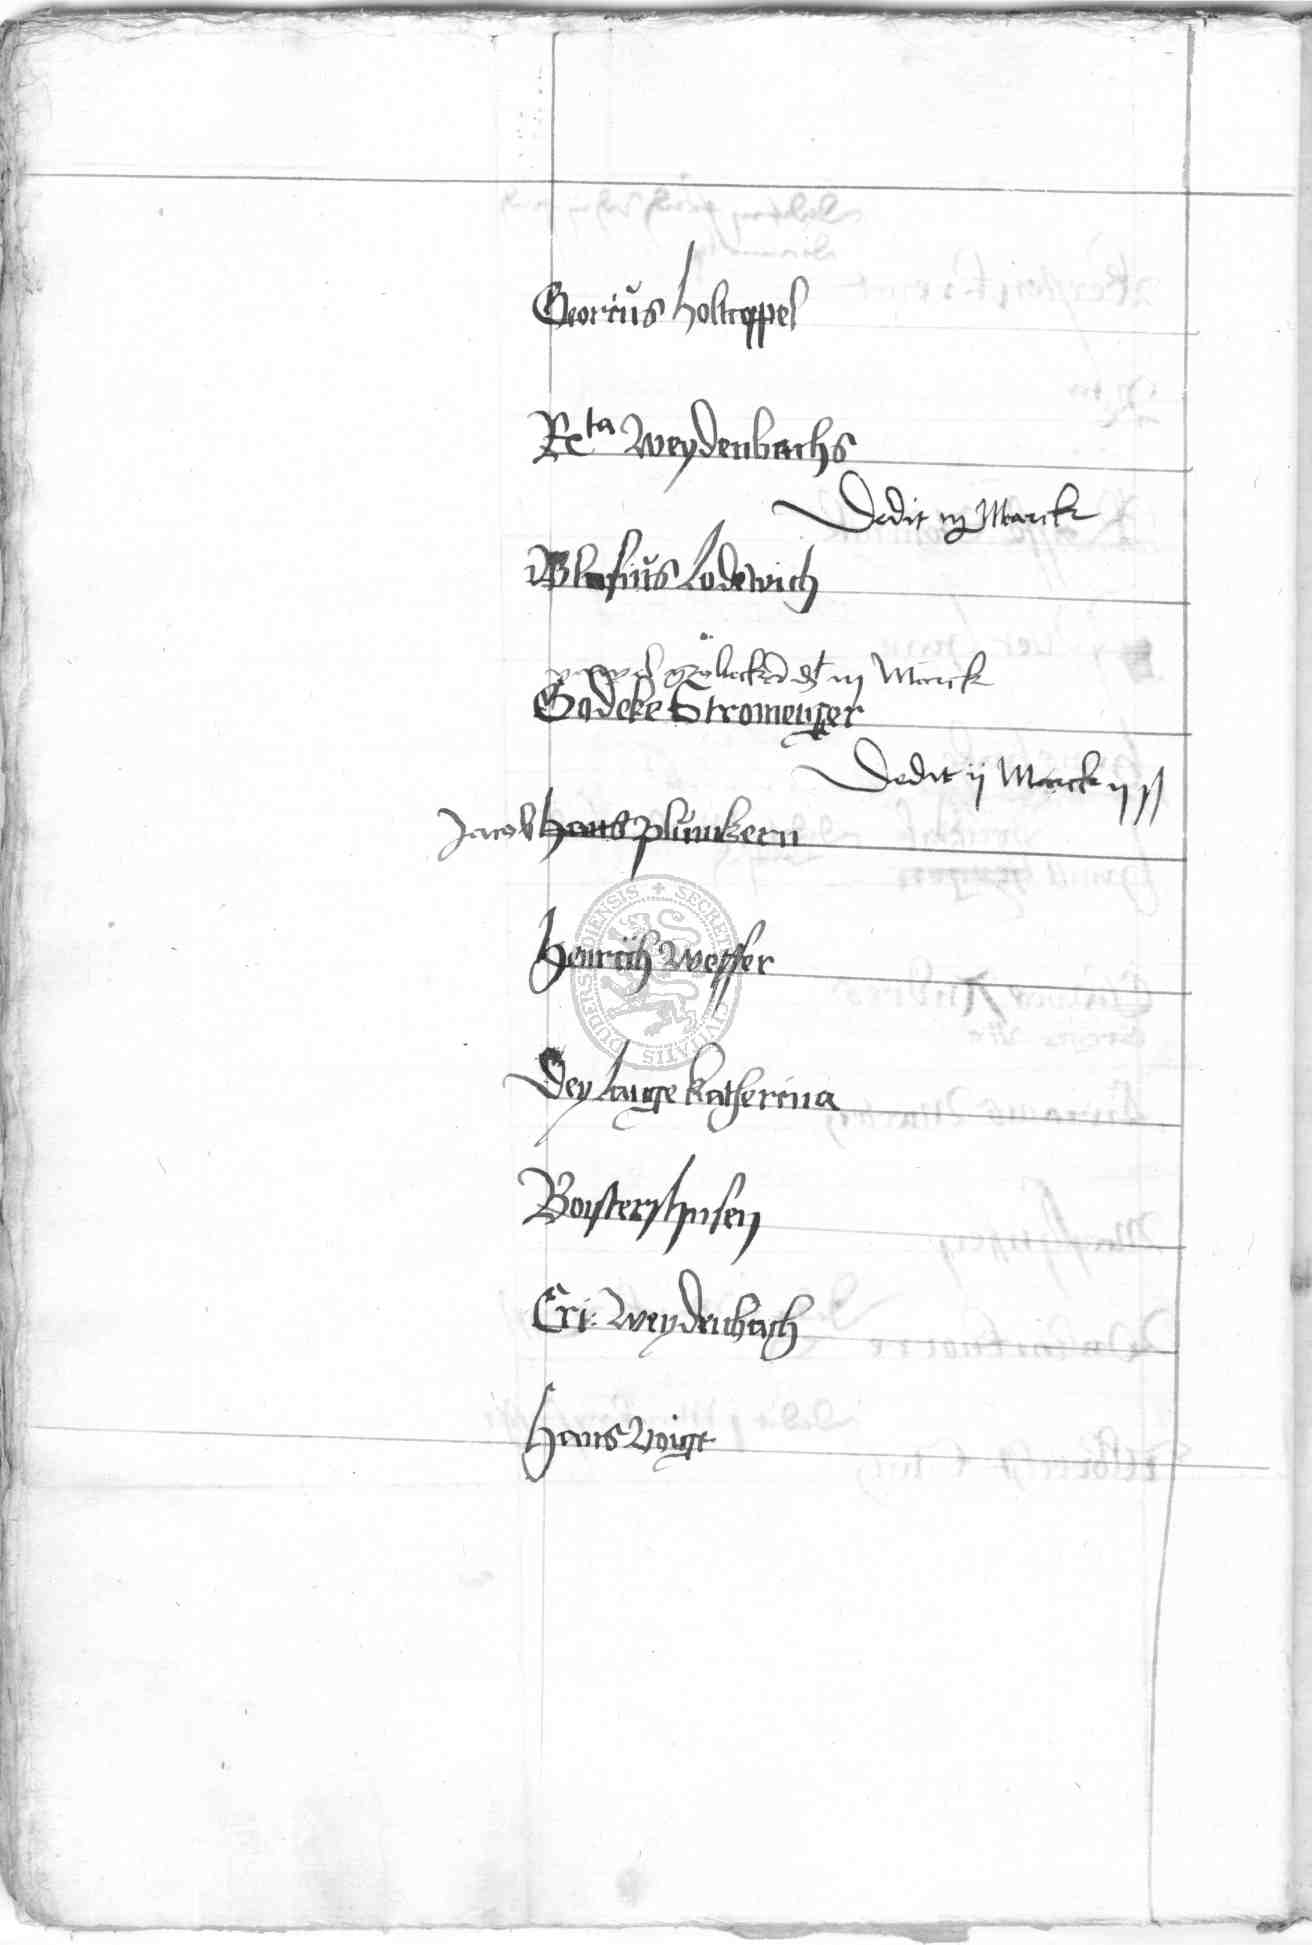 Georius Holtcoppel
Rcta Weydenbachs
Dedit iij Marck
Blasius Lodewich
dt iij Marck
Godeke Stromeyger
Dedit ij Marck ij ß
Jacob Hans Plumkern
Henrich Wepfer
Dey lange Katherina
Borstershusen
Eri: Weydenbach
Hans Voigt
SECRET CIVITATIS DUDERSTADIENSIS